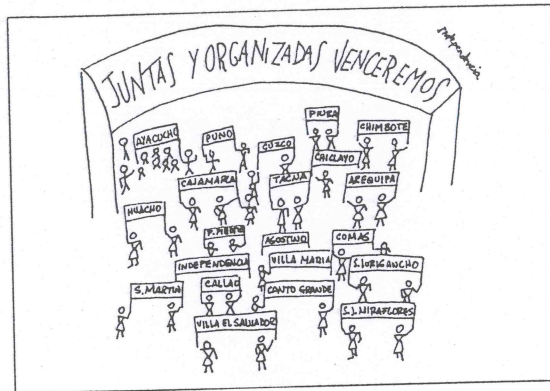 Independencia
JUNTAS Y ORGANIZADAS VENCEREMOS
PIURA
CHIMBOTE
AYACUCHO
PUNO
CUZCO
CHICLAYO
CAJAMARCA
TACNA
AREQUIPA
HUACHO
P. PIEDRA
AGOSTINO
COMAS
INDEPENDENCIA
VILLA MARIA
S. LURIGANCHO
S. MARTIN
CALLAO
CANTO GRANDE
VILLA EL SALVADOR
S.J. MIRAFLORES